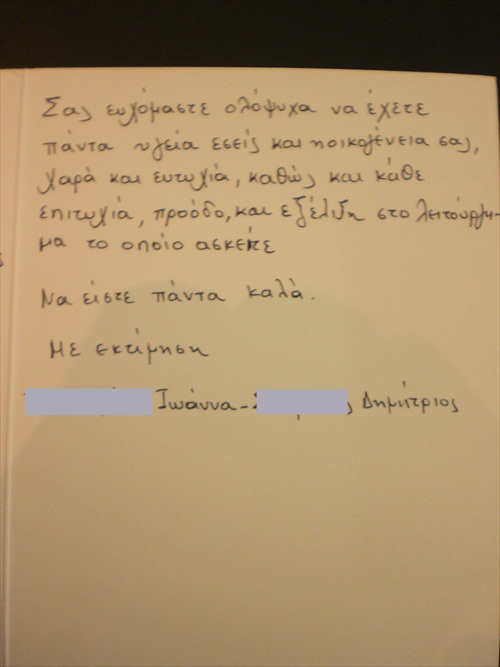 Σας ευχόμαστε ολόψυχα να έχετε
πάντα υγεία εσείς και η οικογένεια σας,
χαρά και ευτυχία, καθώς και κάθε
επιτυχία, προόδο, και εξέλιξη στο λειτούργη-
μα το οποίο ασκείτε
Να είστε πάντα καλά.
Με εκτίμηση
Ιωάννα - Δημήτριος